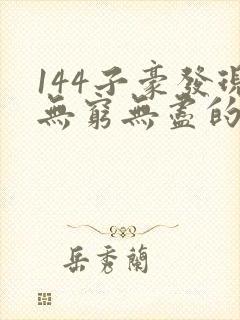 144子豪發現
無窮無盡的
岳秀蘭